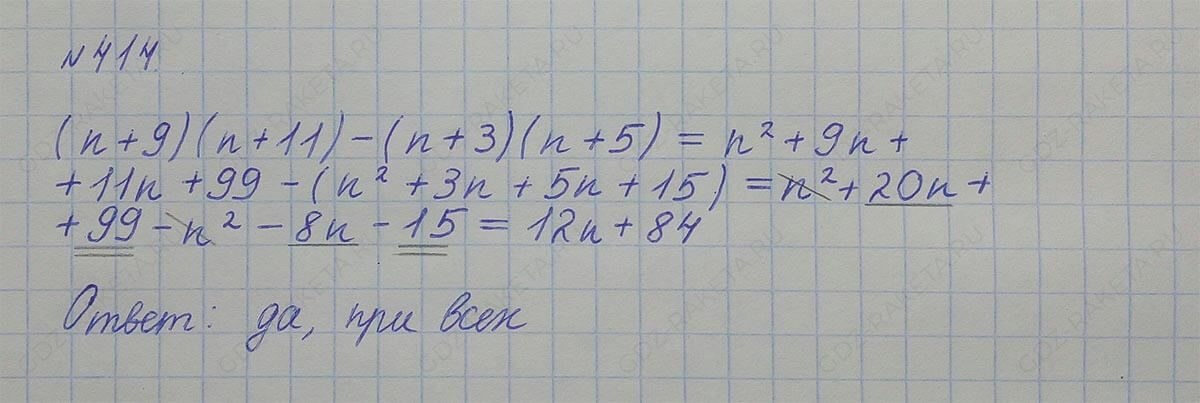 №414.
(n+9)(n+11)-(n+3)(n+5) = n²+9n+
+11n+99-(n²+3n+5n+15)=n²+20n+
+99-n²-8n-15=12n+84
Ответ: да, при всех